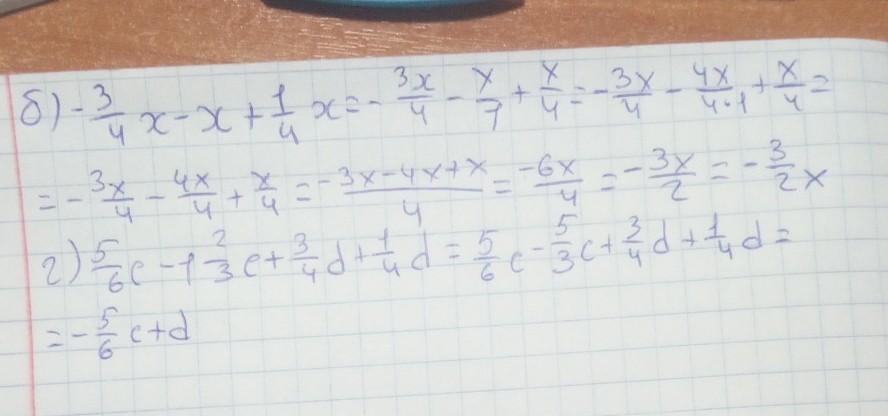 б) -3/4 x - x + 1/4 x = - 3x/4 - x/7 + x/4 = - 3x/4 - 4x/4·1 + x/4 =
= - 3x/4 - 4x/4 + x/4 = -3x-4x+x/4 = -6x/4 = - 3x/2 = - 3/2 x
г) 5/6 c - 1 2/3 c + 3/4 d + 1/4 d = 5/6 c - 5/3 c + 3/4 d + 1/4 d =
= - 5/6 c + d